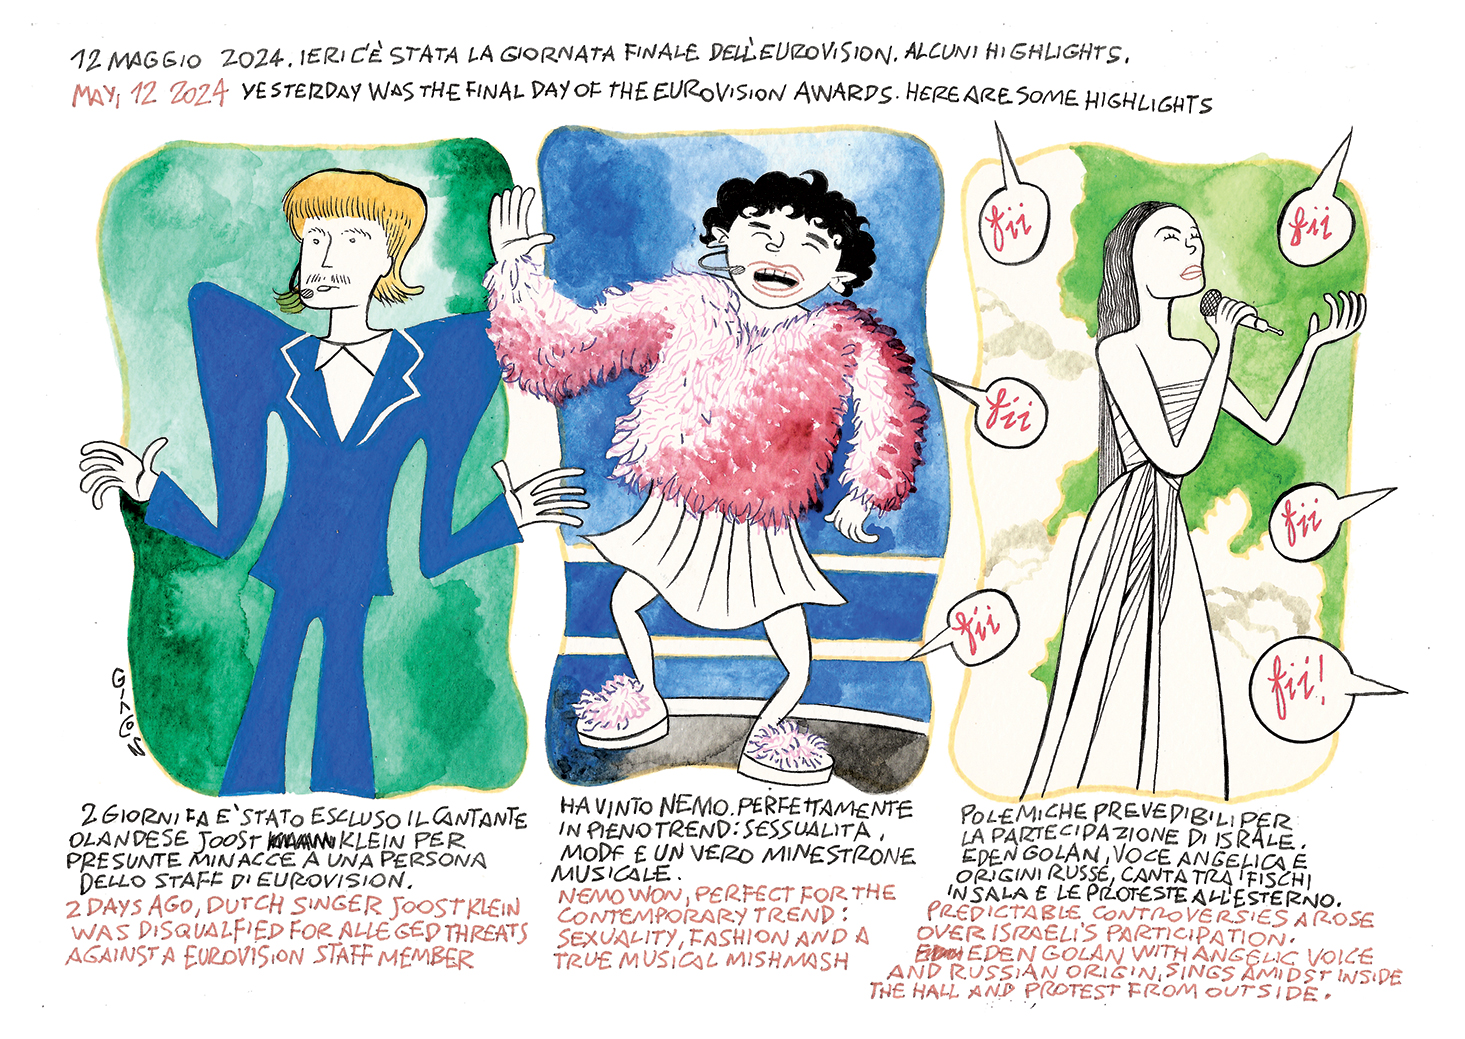 12 MAGGIO 2024. IERI C'È STATA LA GIORNATA FINALE DELL'EUROVISION. ALCUNI HIGHLIGHTS.
MAY, 12 2024 YESTERDAY WAS THE FINAL DAY OF THE EUROVISION AWARDS. HERE ARE SOME HIGHLIGHTS
fii
fii
fii
fii
fii
fii!
2 GIORNI FA E' STATO ESCLUSO IL CANTANTE
OLANDESE JOOST KLEIN PER
PRESUNTE MINACCE A UNA PERSONA
DELLO STAFF DI EUROVISION.
2 DAYS AGO, DUTCH SINGER JOOST KLEIN
WAS DISQUALFIED FOR ALLEGED THREATS
AGAINST A EUROVISION STAFF MEMBER
HA VINTO NEMO. PERFETTAMENTE
IN PIENO TREND: SESSUALITA,
MODE E UN VERO MINESTRONE
MUSICALE.
NEMO WON, PERFECT FOR THE
CONTEMPORARY TREND:
SEXUALITY, FASHION AND A
TRUE MUSICAL MISHMASH
POLEMICHE PREVEDIBILI PER
LA PARTECIPAZIONE DI ISRALE.
EDEN GOLAN, VOCE ANGELICA E
ORIGINI RUSSE, CANTA TRA I FISCHI
IN SALA E LE PROTESTE ALL'ESTERNO.
PREDICTABLE CONTROVERSIES AROSE
OVER ISRAELI'S PARTICIPATION.
EDEN GOLAN WITH ANGELIC VOICE
AND RUSSIAN ORIGIN, SINGS AMIDST INSIDE
THE HALL AND PROTEST FROM OUTSIDE.